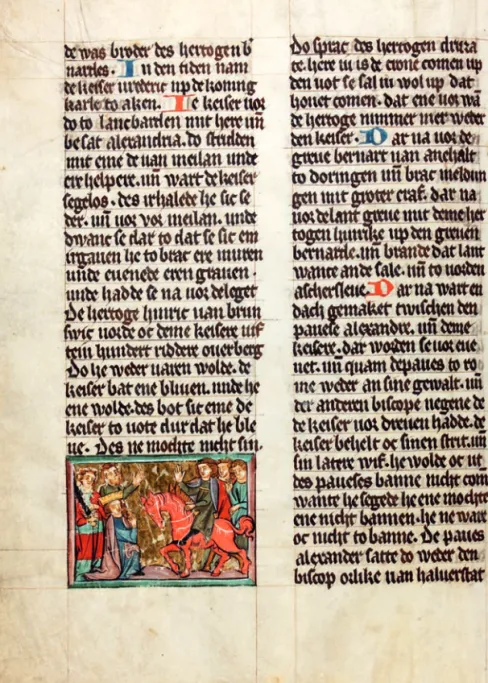 de was broder des hertogen b̾
nardes. In den tiden nam
de keiser vrederic up de koning
karle to aken. De keiser vor
do to lancbarden mit here uñ
besat alexandria. do striden
mit eme de van meilan unde
ere helpere. uñ wart de keiser
segelos. des irhalede he sic se
der. uñ vor vor meilan. unde
dwanc se dar to dat se sic em
irgauen he to brac ere muren
unde euenede eren grauen.
unde hadde se na vor deleget
De hertoge hinric van brun
swic vorde oc deme keisere uif
tein hundert riddere ouerberg
Do he weder uaren wolde. de
keiser bat ene bliuen. unde he
ene wolde. des bot sic eme de
keiser to uote dur dat he ble
ue. Des ne mochte nicht sin.
Do sprac des hertogen druza
te. here iu is de crone comen up
den uot se sal iu wol up dat
houet comen. dat ene uor wā
de hertoge nummer mer weder
den keiser. Dar na uor de
greue bernart uan anehalt
to doringen uñ brac meldun
gen mit groter craft. dar na
uor de lant greue mit deme her
togen hinrike up den greuen
bernarde. uñ brande dat lant
wante an de sale. uñ to uorden
aschersleue. Dar na wart en
dach gemaket twischen den
pauese alexandre. uñ deme
keisere. dar worden se uor eue
net. uñ quam de paues to ro
me weder an sine gewalt. uñ
der anderen biscope negene de
de keiser uor dreuen hadde. de
keiser behelt oc sinen strit. uñ
sin lattere wif. he wolde oc ut
des paueses banne nicht com
wante he segede he ene mochte
ene nicht bannen. he ne ware
oc nicht to banne. De paues
alexander satte do weder den
biscop olrike uan haluerstat